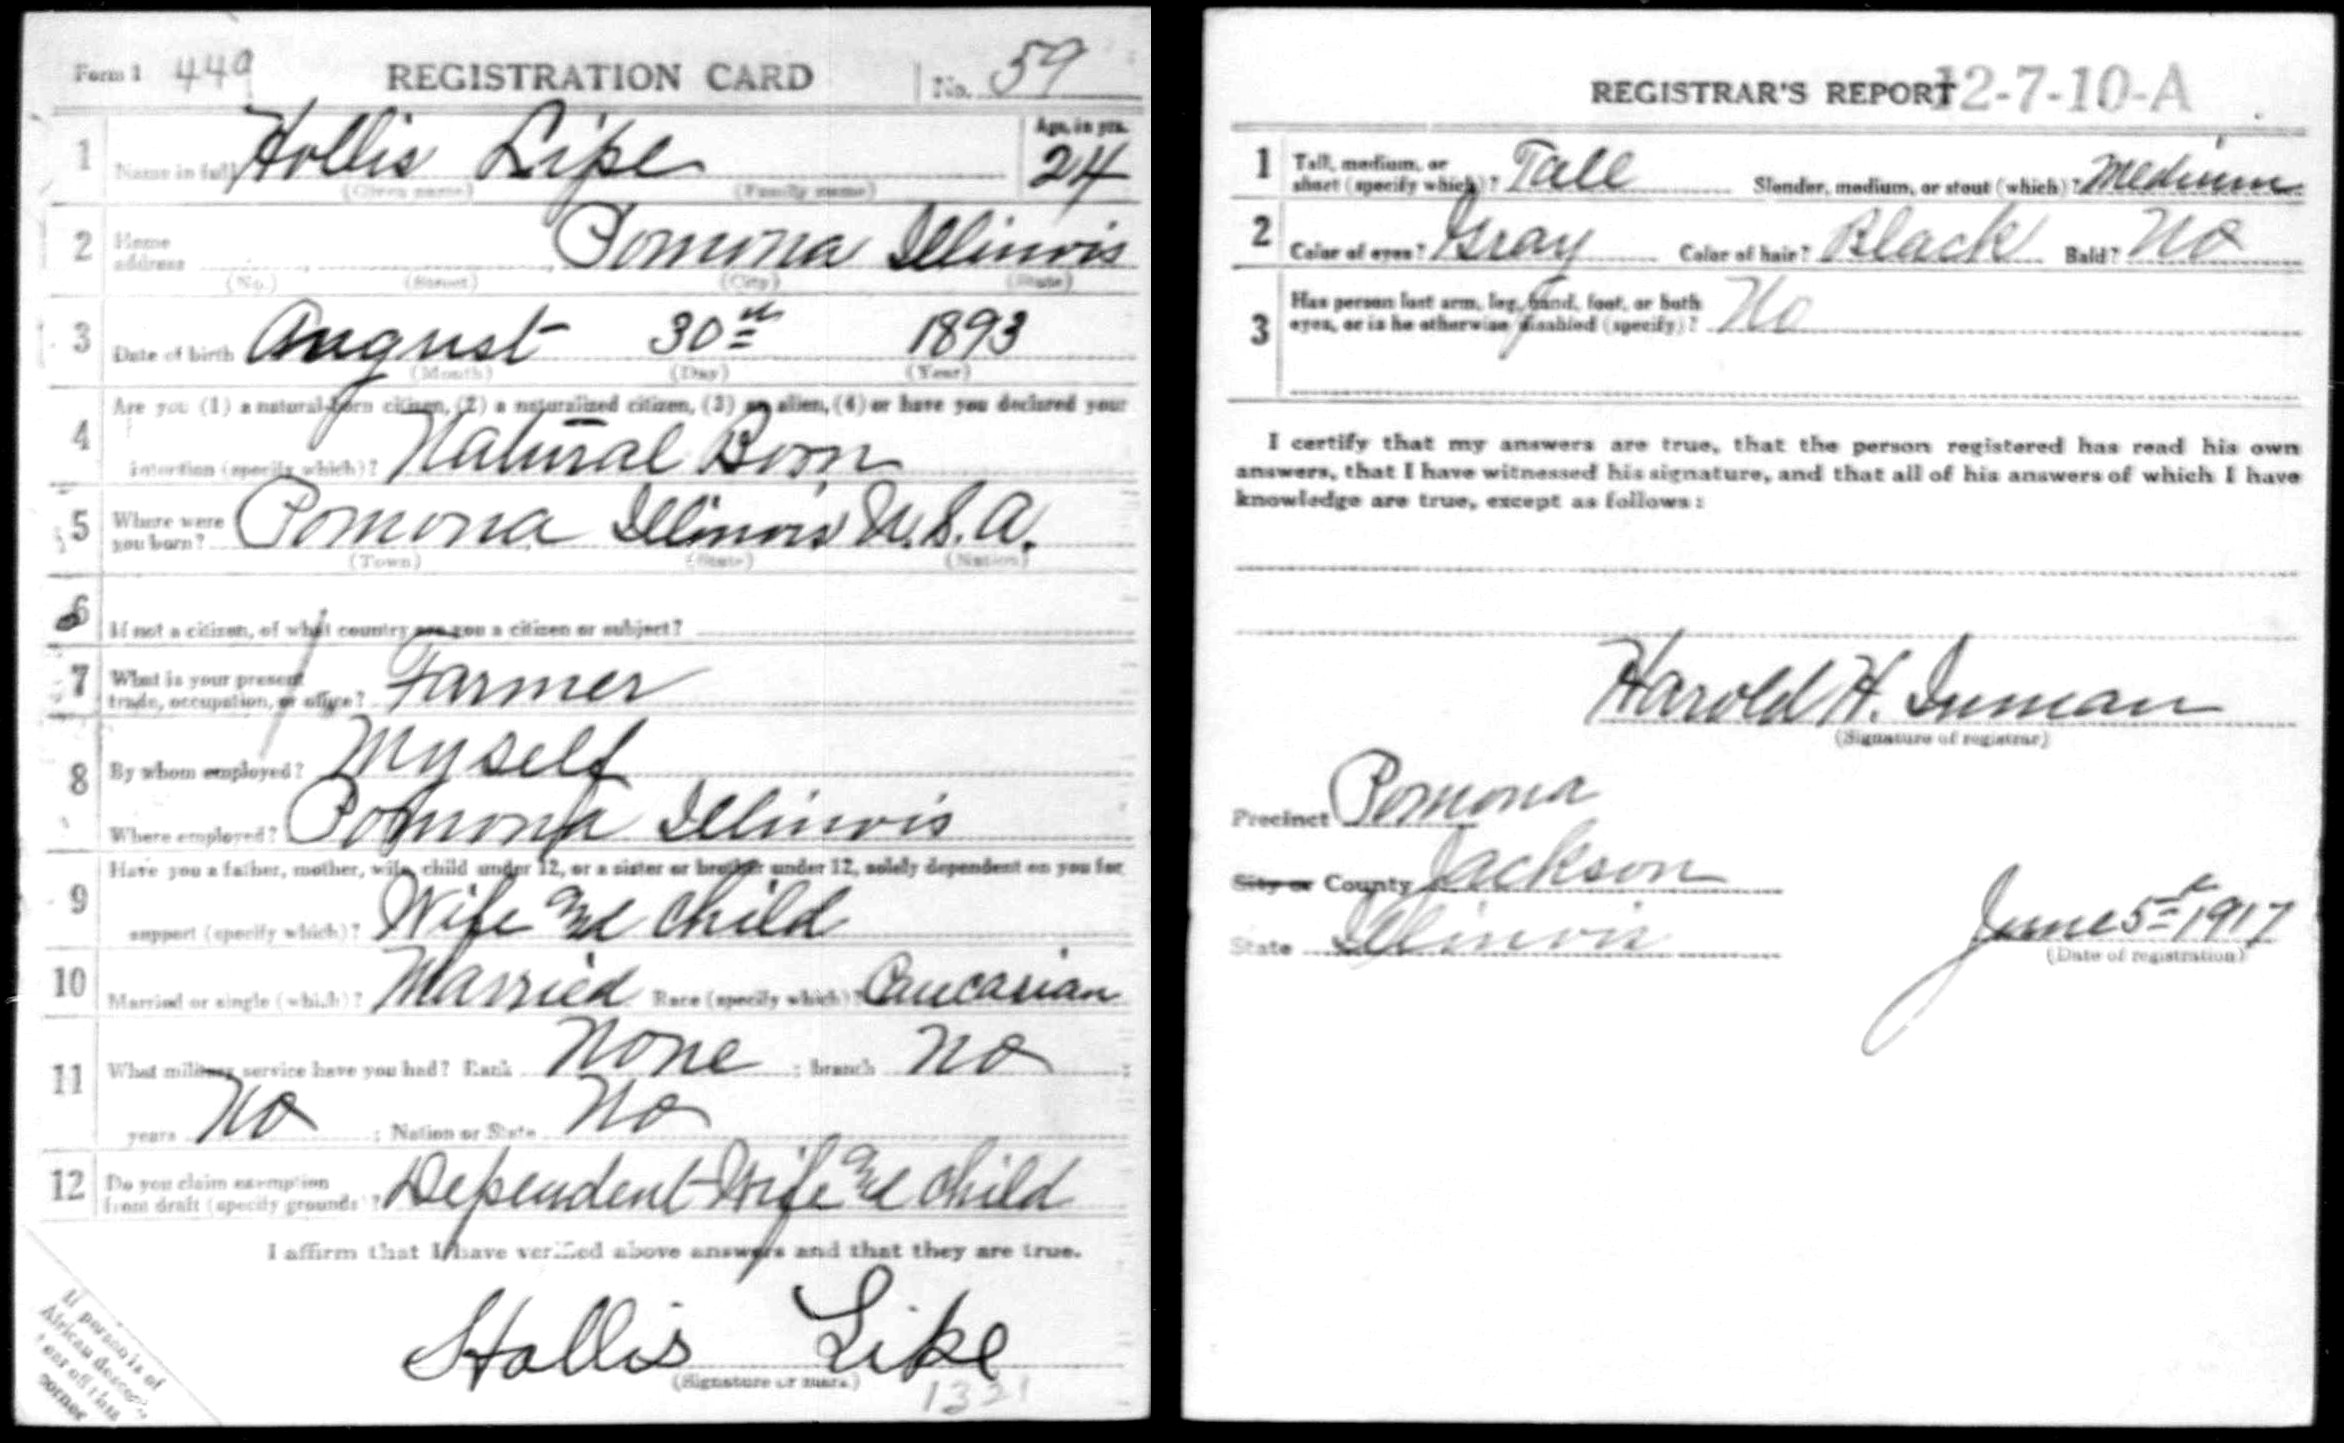 Form 1 449 REGISTRATION CARD No. 59
1 Name in full Hollis Lipe Age, in yrs. 24
(Given name) (Family name)
2 Home address Pomona Illinois
(No.) (Street) (City) (State)
3 Date of birth August 30th 1893
(Month) (Day) (Year)
4 Are you (1) a natural-born citizen, (2) a naturalized citizen, (3) an alien, (4) or have you declared your
intention (specify which)? Natural Born
5 Where were you born? Pomona Illinois U.S.A.
(Town) (State) (Nation)
6 If not a citizen, of what country are you a citizen or subject?
7 What is your present
trade, occupation, or office? Farmer
8 By whom employed? Myself
Where employed? Pomona Illinois
9 Have you a father, mother, wife, child under 12, or a sister or brother under 12, solely dependent on you for
support (specify which)? Wife and child
10 Married or single (which)? Married Race (specify which)? Caucasian
11 What military service have you had? Rank None ; branch No ;
years No ; Nation or State No
12 Do you claim exemption
from draft (specify grounds)? Dependent Wife and child
I affirm that I have verified above answers and that they are true.
Hollis Lipe
(Signature or mark)
1321
If person is of
African descent,
tear off this
corner
REGISTRAR'S REPORT 12-7-10-A
1 Tall, medium, or
short (specify which)? Tall Slender, medium, or stout (which)? Medium
2 Color of eyes? Gray Color of hair? Black Bald? No
3 Has person lost arm, leg, hand, foot, or both
eyes, or is he otherwise disabled (specify)? No
I certify that my answers are true, that the person registered has read his own
answers, that I have witnessed his signature, and that all of his answers of which I have
knowledge are true, except as follows:
Harold H. Inman
(Signature of registrar)
Precinct Pomona
City or County Jackson
State Illinois June 5th 1917
(Date of registration)